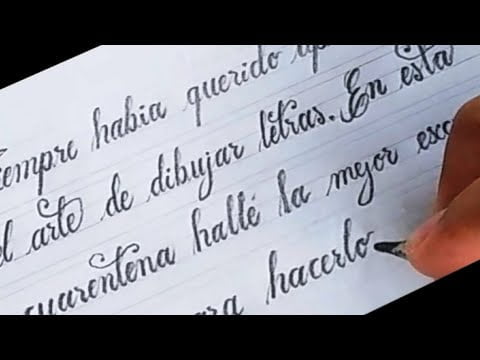 siempre habia querido
el arte de dibujar letras. En esta
cuarentena hallé la mejor
hacerlo